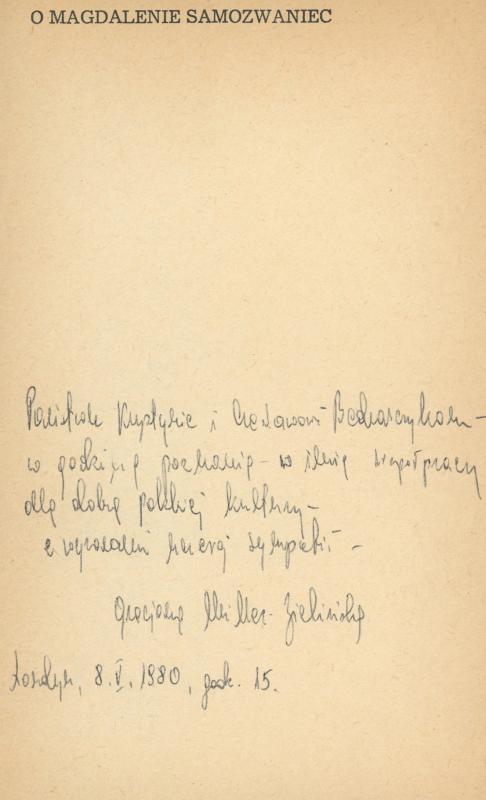 O MAGDALENIE SAMOZWANIEC
Państwu Krystynie i Czesławowi Bednarczykom –
w godzinę poznania – w imię współpracy
dla dobra polskiej kultury –
z wyrazami szczerej sympatii –
Gracjana Miller-Zielińska
Londyn, 8. V. 1980, godz. 15.